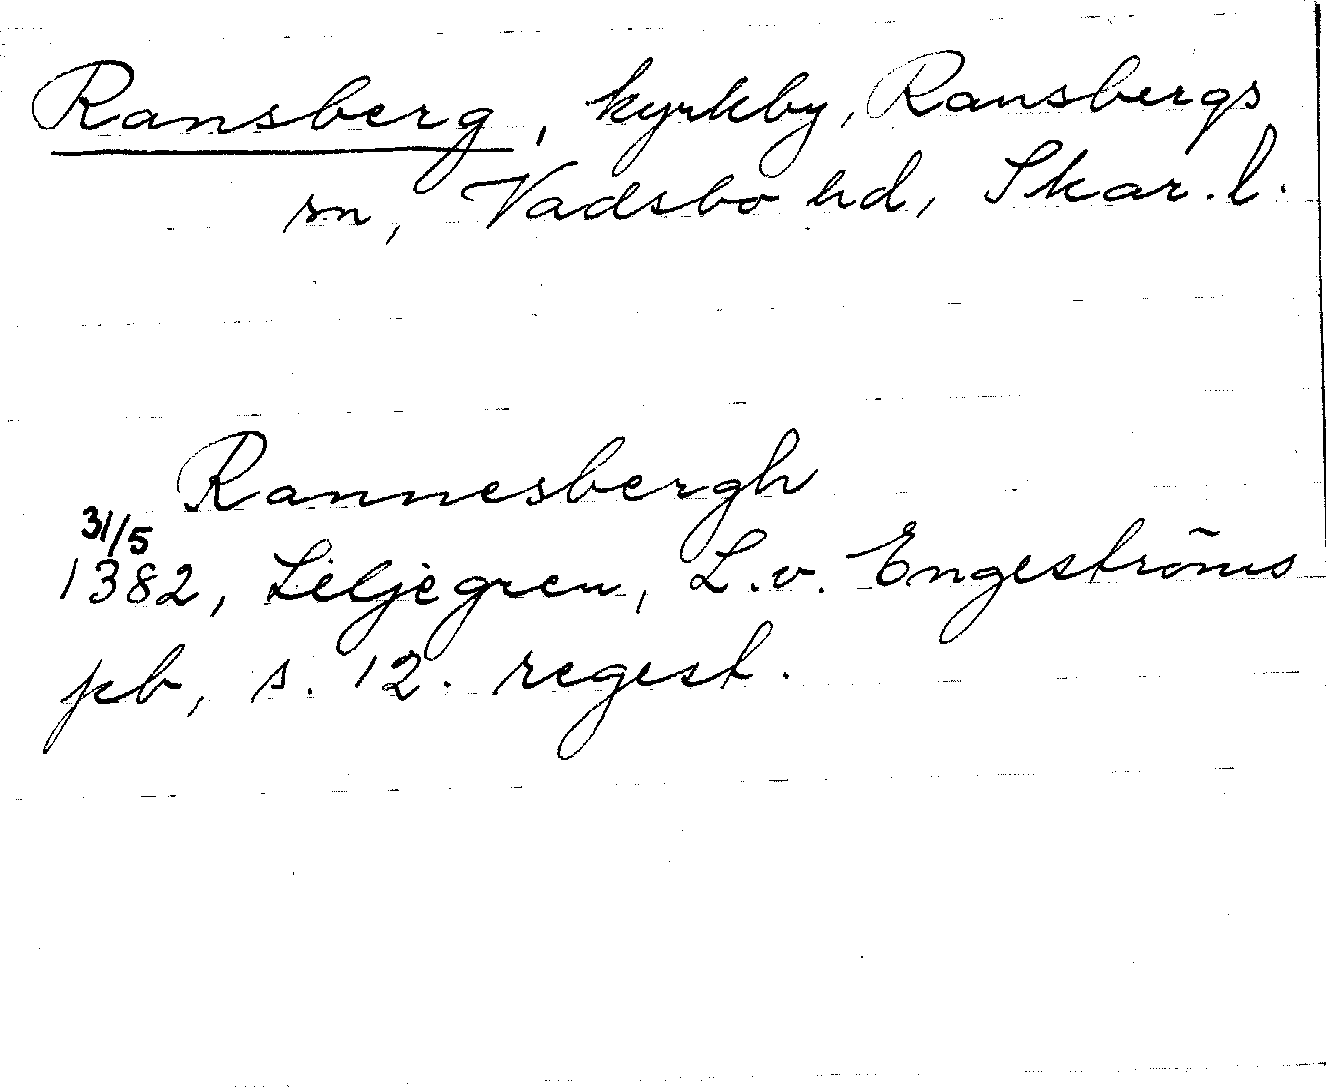 Ransberg, kyrkby, Ransbergs
sn, Vadsbo hd, Skar. l.
Rannesbergh
31/5
1382, Liljegren, L. v. Engeströms
pb, s. 12. regest.